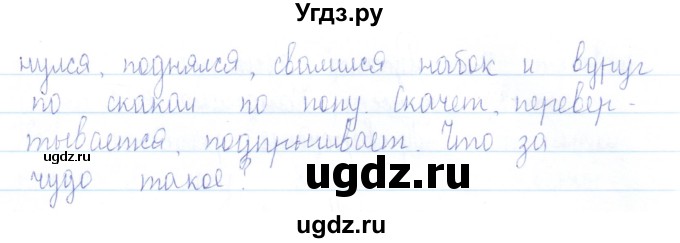 Угдз.ру
нулся, поднялся, свалился набок и вдруг
по скакал по полу. Скачет, перевер-
тывается, подпрыгивает. Что за
чудо такое?
угдз.ру
угдз.ру
угдз.ру